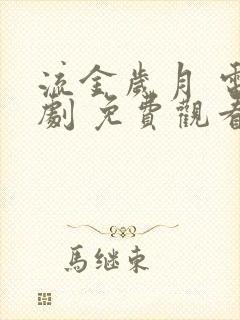 流金歲月 電
劇 免費觀看
馬继東